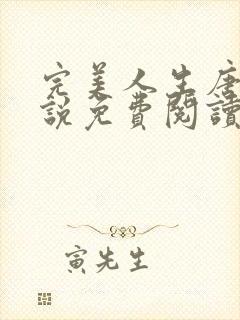 完美人生唐
說免費閱讀
寅先生